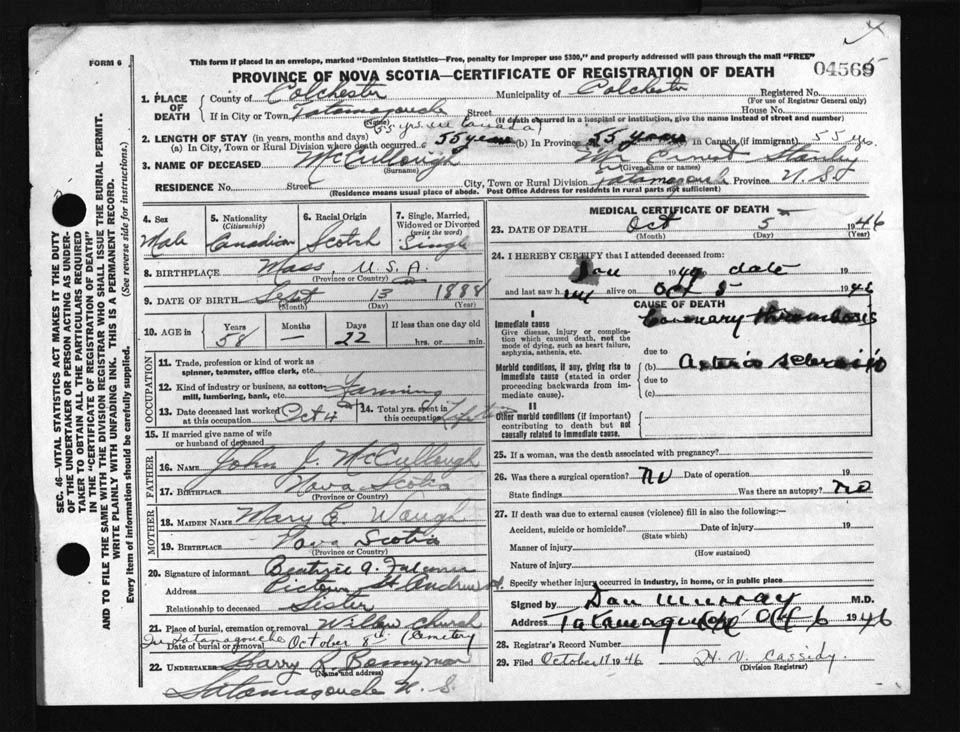 FORM 6
This form if placed in an envelope, marked "Dominion Statistics—Free, penalty for improper use $300," and properly addressed will pass through the mail "FREE"
PROVINCE OF NOVA SCOTIA—CERTIFICATE OF REGISTRATION OF DEATH
04565
SEC. 46—VITAL STATISTICS ACT MAKES IT THE DUTY
OF THE UNDERTAKER OR PERSON ACTING AS UNDER-
TAKER TO OBTAIN ALL THE PARTICULARS REQUIRED
IN THE "CERTIFICATE OF REGISTRATION OF DEATH"
AND TO FILE THE SAME WITH THE DIVISION REGISTRAR WHO SHALL ISSUE THE BURIAL PERMIT.
WRITE PLAINLY WITH UNFADING INK. THIS IS A PERMANENT RECORD.
Every item of information should be carefully supplied. (See reverse side for instructions.)
1. PLACE OF DEATH
County of Colchester Municipality of Colchester Registered No.
(For use of Registrar General only)
If in City or Town Tatamagouche Street House No.
(Name) (If death occurred in a hospital or institution, give its name instead of street and number)
(55 yrs. in Canada)
2. LENGTH OF STAY (in years, months and days)
(a) In City, Town or Rural Division where death occurred 55 years (b) In Province 55 years in Canada (if immigrant) 55 yrs.
3. NAME OF DECEASED McCullough Mr Ernest Stanley
(Surname) (Given name or names)
RESIDENCE No. Street City, Town or Rural Division Tatamagouche Province N.S.
(Residence means usual place of abode. Post Office Address for residents in rural parts not sufficient)
4. Sex Male
5. Nationality (Citizenship) Canadian
6. Racial Origin Scotch
7. Single, Married, Widowed or Divorced (write the word) Single
8. BIRTHPLACE Mass, U.S.A.
(Province or Country)
9. DATE OF BIRTH Sept 13 1888
(Month) (Day) (Year)
10. AGE in Years Months Days If less than one day old
58 — 22 hrs. or min.
OCCUPATION
11. Trade, profession or kind of work as
spinner, teamster, office clerk, etc.
12. Kind of industry or business, as cotton-
mill, lumbering, bank, etc. Farming
13. Date deceased last worked at this occupation Oct 4
14. Total yrs. spent in this occupation
15. If married give name of wife
or husband of deceased
FATHER
16. NAME John J. McCullough
17. BIRTHPLACE Nova Scotia
(Province or Country)
MOTHER
18. MAIDEN NAME Mary E. Waugh
19. BIRTHPLACE Nova Scotia
(Province or Country)
20. Signature of informant Beatrice A.
Address Pictou St Andrew St.
Relationship to deceased Sister
21. Place of burial, cremation or removal Willow Church
In Tatamagouche (Cemetery
Date of burial or removal October 8th
22. UNDERTAKER Harry R. Bonnyman
(Name and address)
Tatamagouche N. S.
MEDICAL CERTIFICATE OF DEATH
23. DATE OF DEATH Oct 5 1946
(Month) (Day) (Year)
24. I HEREBY CERTIFY that I attended deceased from:
Jan 1940 date 19
and last saw him alive on Oct 5 1946
CAUSE OF DEATH
I
Immediate cause
Give disease, injury or complica-
tion which caused death, not the
mode of dying, such as heart failure,
asphyxia, asthenia, etc.
Coronary thrombosis
due to
Morbid conditions, if any, giving rise to
immediate cause (stated in order
proceeding backwards from im-
mediate cause).
(b) Arterio sclerosis
due to
(c)
II
Other morbid conditions (if important)
contributing to death but not
causally related to immediate cause.
25. If a woman, was the death associated with pregnancy?
26. Was there a surgical operation? No Date of operation 19
State findings Was there an autopsy? No
27. If death was due to external causes (violence) fill in also the following:—
Accident, suicide or homicide? Date of injury 19
(State which)
Manner of injury
(How sustained)
Nature of injury
Specify whether injury occurred in industry, in home, or in public place
Signed by Dan Murray M.D.
Address Tatamagouche Oct 6 1946
28. Registrar's Record Number
29. Filed October 11 1946 H. V. Cassidy.
(Division Registrar)